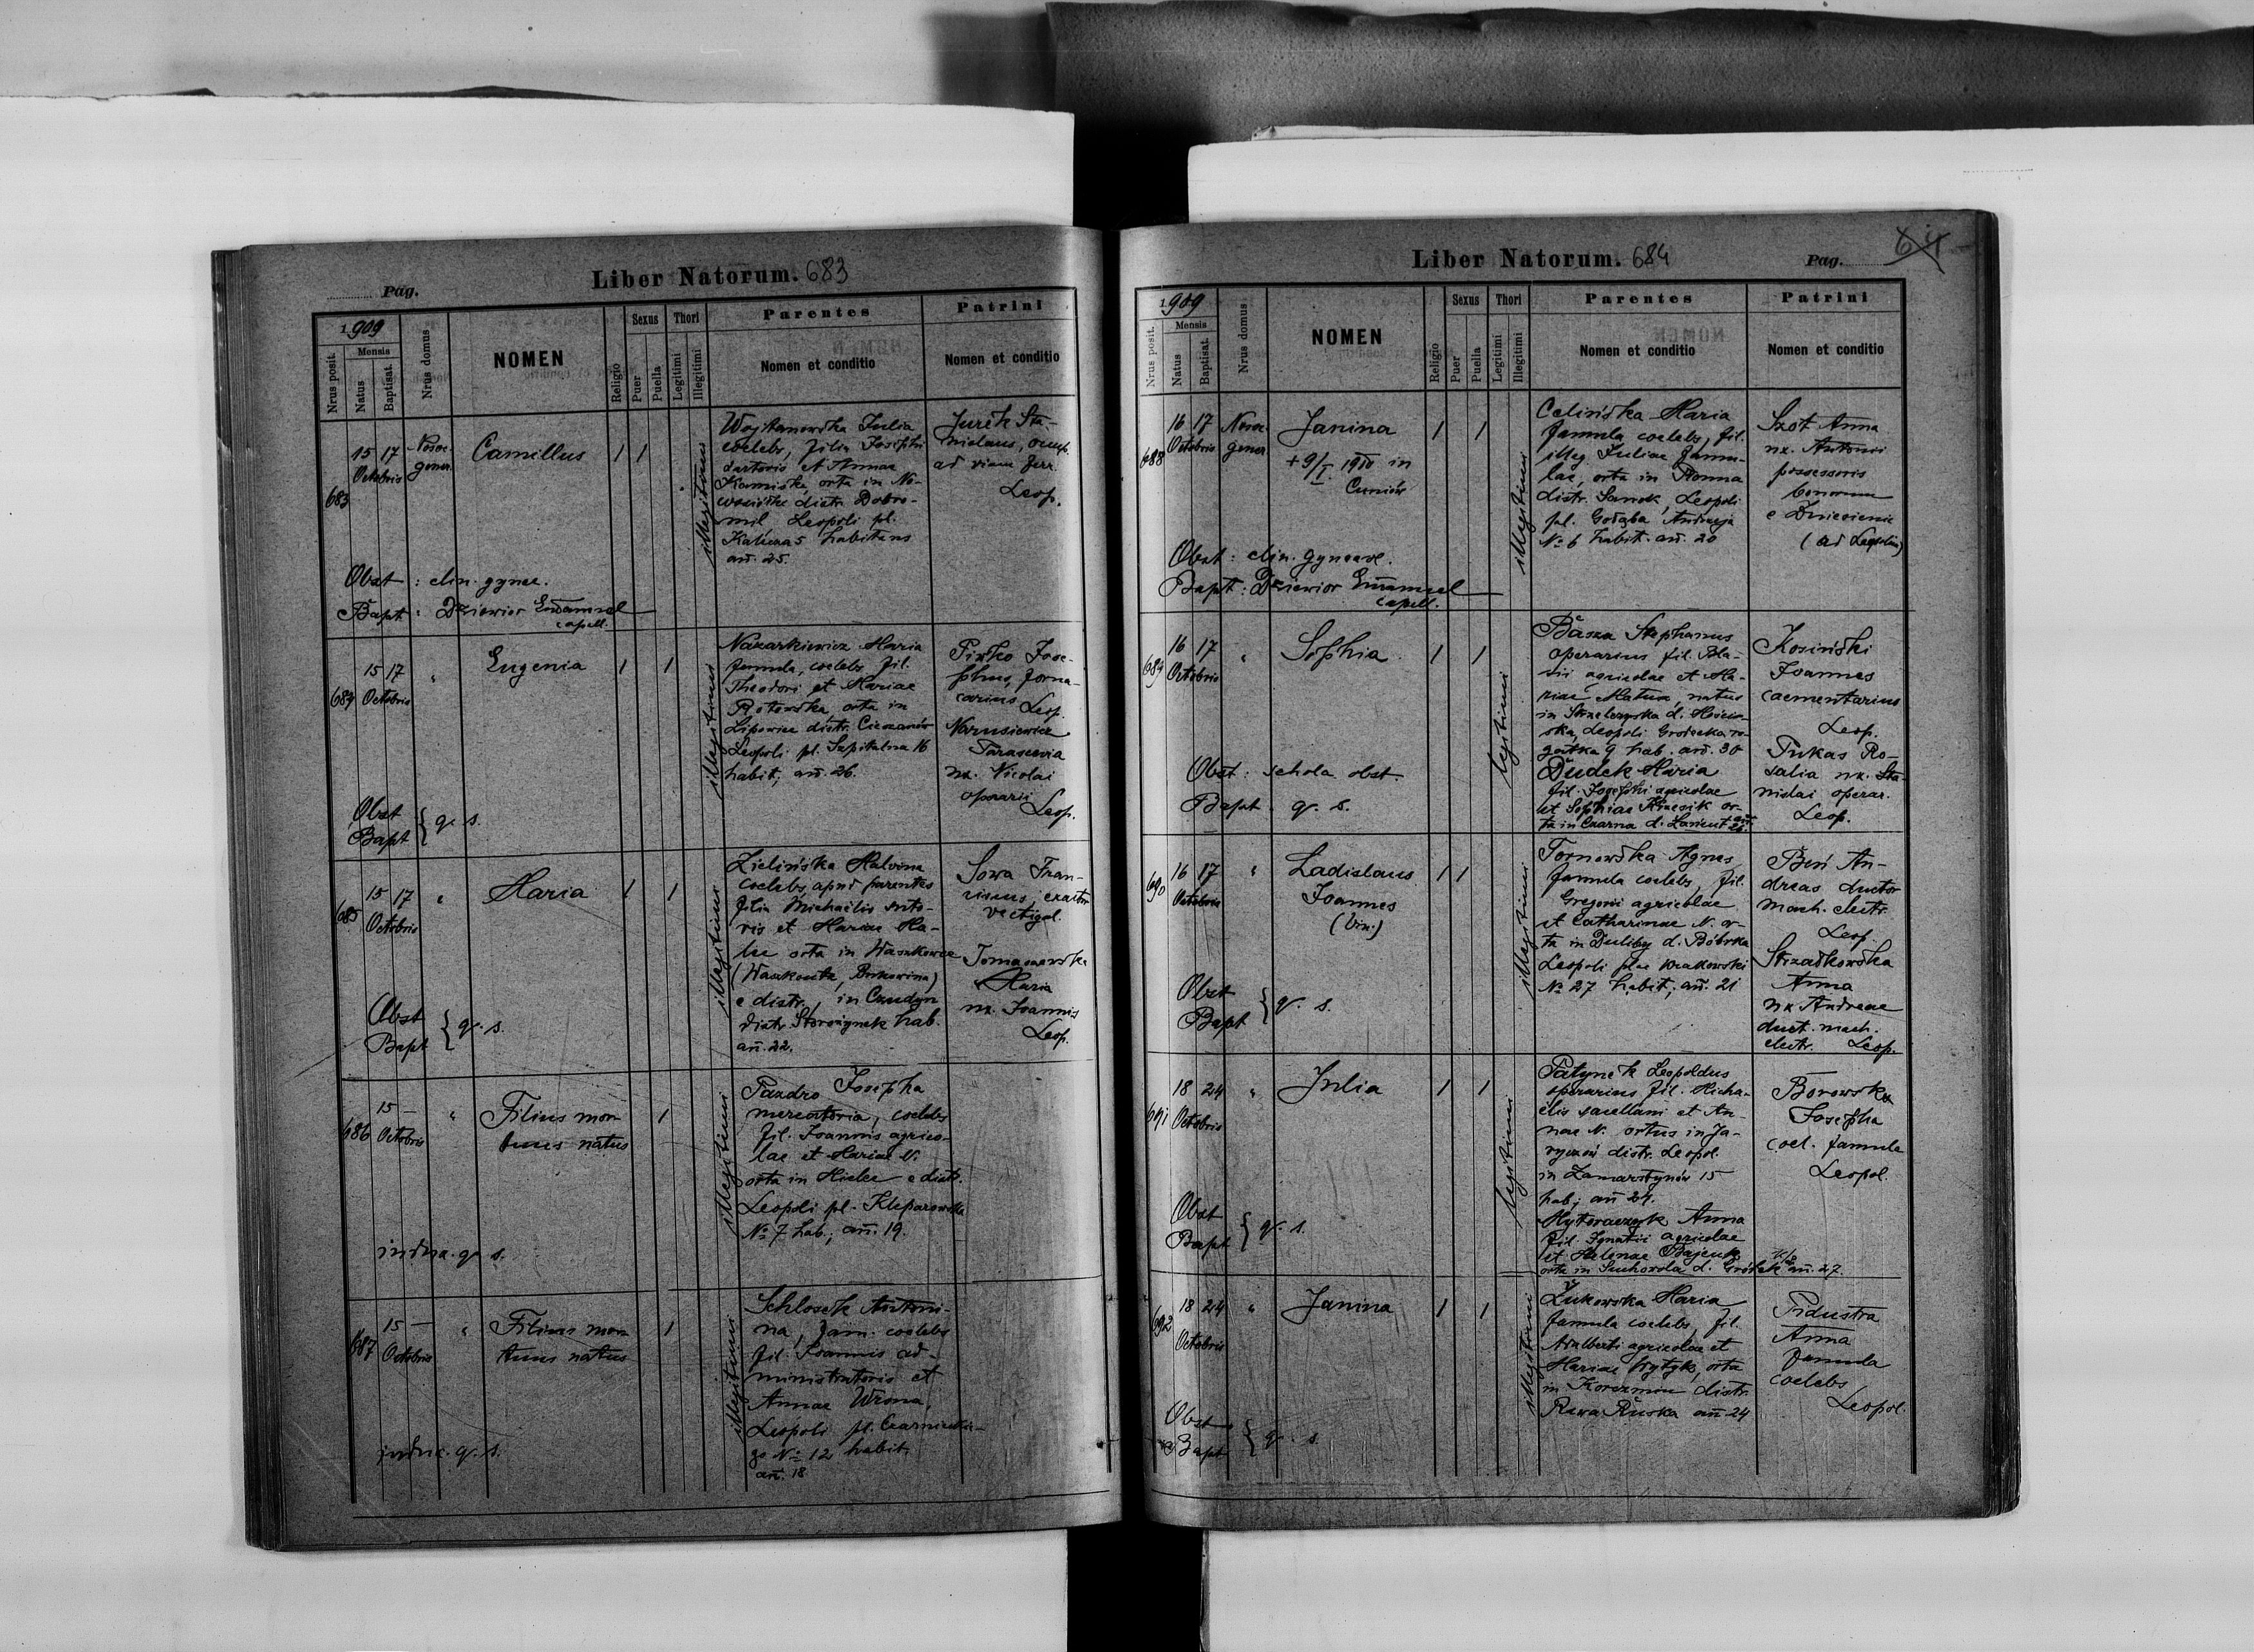 Pag.
Liber Natorum. 683
1909
Nrus posit.
Mensis
Natus
Baptisat.
Nrus domus
NOMEN
Religio
Sexus
Puer
Puella
Thori
Legitimi
Illegitimi
Parentes
Nomen et conditio
Patrini
Nomen et conditio
683
15 17
Octobris
Nosoc.
gener.
Camillus
1 1
illegitimi
Wojtanowska Julia
coelebs, filia Josephi
sartoris et Annae
Kamińska, orta in No-
wosiółki distr. Dobro-
mil, Leopoli pl.
habitans
an. 25.
Jurek Sta-
nislaus,
ad viam ferr.
Leop.
Obst : clin. gynec.
Bapt : Dziewior Emanuel
capell.
684
15 17
Octobris
"
Eugenia
1 1
illegitimi
Nazarkiewicz Maria
famula, coelebs, fil.
Theodori et Mariae
Rotowska, orta in
Lipowiec distr. Cieszanów
Leopoli pl. Szpitalna 16
habit., an. 26.
Pirko Jose-
phus, forna-
carius Leop.
Narusiewicz
Parascevia
ux. Nicolai
operarii
Leop.
Obst
Bapt } q. s.
685
15 17
Octobris
"
Maria
1 1
illegitimi
Zielińska Malvina
coelebs, apud parentes
filia Michaëlis suto-
ris et Mariae Ma-
orta in Waszkowce
(Waszkoutz, Bukowina)
e distr., in Czudyn
distr. Storożynek hab.
an. 22.
Sowa Fran-
ciscus, exactor
vectigal.
Tomaszewska
Maria
ux. Joannis
Leop.
Obst
Bapt } q. s.
686
15 —
Octobris
"
Filius mor-
tuus natus
1
illegitimi
Pazdro Josepha
mercatoria, coelebs
fil. Joannis agrico-
lae et Mariae N.
orta in Mielec e distr.
Leopoli pl. Kleparowska
No 7 hab., an. 19.
indna. q. s.
687
15 —
Octobris
"
Filius mor-
tuus natus
1
illegitimi
Schlosek Antoni-
na, fam. coelebs
fil. Joannis ad-
ministratoris et
Annae Wrona,
Leopoli pl. Czarnieckie-
go No 12 habit.
an. 18
indna. q. s.
Liber Natorum. 684
Pag.
64
1909
Nrus posit.
Mensis
Natus
Baptisat.
Nrus domus
NOMEN
Religio
Sexus
Puer
Puella
Thori
Legitimi
Illegitimi
Parentes
Nomen et conditio
Patrini
Nomen et conditio
688
16 17
Octobris
Nosoc.
gener
Janina
+ 9/I 1910 in
Cuniów
1 1
illegitimi
Celińska Maria
famula coelebs, fil.
illeg. Juliae famu-
lae, orta in Płonna
distr. Sanok, Leopoli
pl. Gołąba Andrzeja
No 6 habit. an. 20
Szot Anna
ux. Antonii
possessoris
bonorum
e Zniesienie
(ad Leopolim)
Obst : clin. gynaec.
Bapt : Dziewior Emanuel
capell.
689
16 17
Octobris
"
Sophia
1 1
legitimi
Basza Stephanus
operarius fil. Bla-
sii agricolae et Ma-
riae Matura, natus
in Strzelczyska d. Mości-
ska, Leopoli Grodecka ro-
gatka 9 hab. an. 30
Dudek Maria
fil. Josephi agricolae
et Sophiae or-
ta in Czarna d. Łańcut an.
26.
Kosiński
Joannes
caementarius
Leop.
Pukas Ro-
salia ux. Sta-
nislai operar.
Leop.
Obst : schola obst.
Bapt. q. s.
690
16 17
Octobris
"
Ladislaus
Joannes
(bin.)
1 1
illegitimi
Tornowska Agnes
famula coelebs, fil.
Gregorii agricolae
et Catharinae N. or-
ta in Duliby d. Bóbrka
Leopoli plac Krakowski
No 27 habit., an. 21
Beń An-
dreas ductor
mach. electr.
Leop.
Strzałkowska
Anna
ux Andreae
duct. mach.
electr. Leop.
Obst
Bapt } q. s.
691
18 24
Octobris
"
Julia
1 1
legitimi
Patynek Leopoldus
operarius fil. Micha-
elis sacellani et An-
nae N. ortus in Ja-
ryczów distr. Leopol.
in Zamarstynów 15
hab., an 24.
Anna
fil. Ignatii agricolae
et Helenae
orta in Suchowola d. Gródek an. 27.
Borowska
Josepha
coel. famula
Leopol.
Obst
Bapt } q. s.
692
18 24
Octobris
"
Janina
1 1
illegitimi
Żukowska Maria
famula coelebs, fil.
Adalberti agricolae et
Mariae Wytyk, orta
in Korczmin distr.
Rawa Ruska an. 24
Pidustra
Anna
famula
coelebs
Leopol.
Obst
Bapt } q. s.